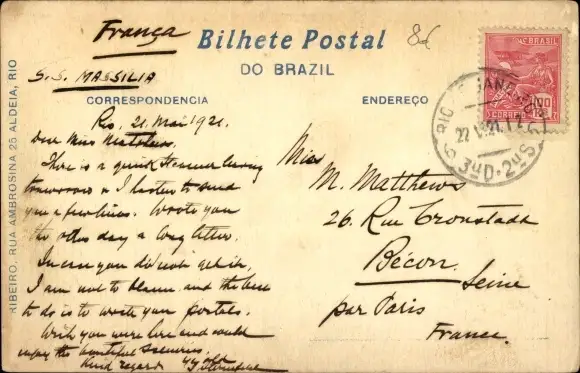 França
Bilhete Postal
DO BRAZIL
S.S. MASSILIA
CORRESPONDENCIA
ENDEREÇO
Rio, 21 Mai 1921.
Dear Miss Matthews.
There is a quick steamer leaving
tomorrow & I hasten to send
you a few lines. Wrote you
the other day a long letter.
In case you did not get it,
I am not to blame and the best
to do is to write your postals.
Wish you were here and could
enjoy the beautiful sceneries.
Kind regards
Miss
M. Matthews
26. Rue Cronstadt
Bécon.
Seine
par Paris
France.
BRASIL
CORREIO
100
RIO DE JANEIRO
RIBEIRO, RUA AMBROSINA 25 ALDEIA, RIO